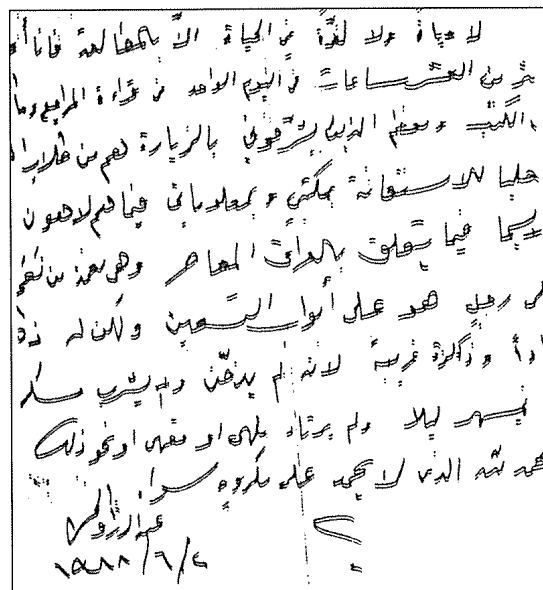 لا حياة ولا لذة في الحياة الا بالمطالعة فانا أ
من العشر ساعات في اليوم الواحد في قراءة المراجع وما
الكتب ومعظم الذين يشرفوني بالزيارة هم من طلاب ا
للاستعانة بمكتبتي وبمعلوماتي فيما هم لاهون
سيما فيما يتعلق بالعراق المعاصر وهي نعمة من نعم
رجل هو على أبواب التسعين ولكن له ذ
وذاكرة غريبة لانه لم يدخن ولم يشرب مسكر
يسهر ليلا ولم يرتاد ملهى او مقهى او نحو ذلك
لله الذي لا يحمد على مكروه سواه
عبد الرزاق الحسني
١٩٨٨/٦/٤